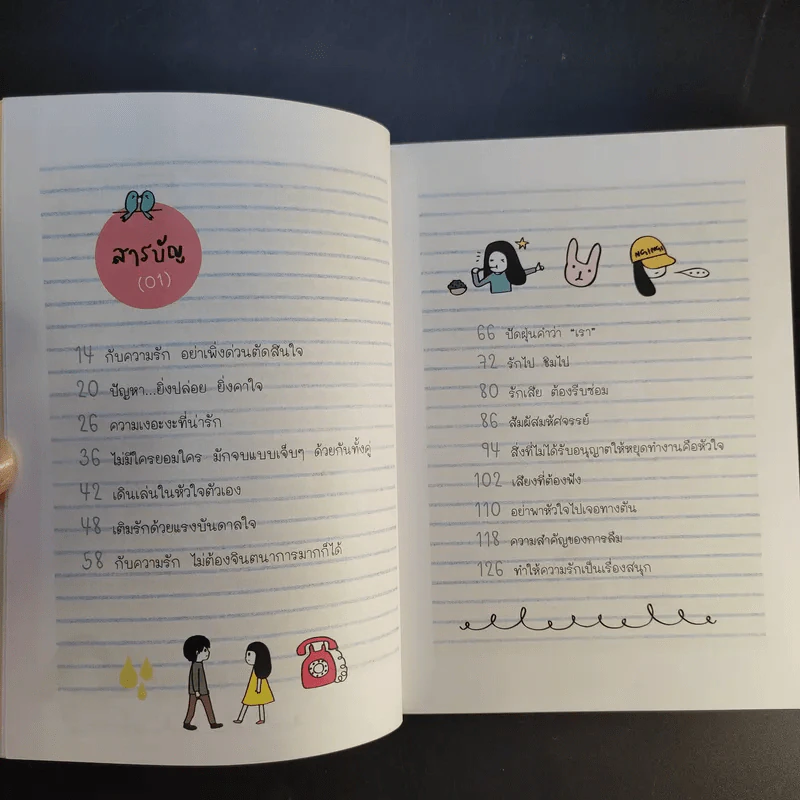 สารบัญ
(01)
14 กับความรัก อย่าเพิ่งด่วนตัดสินใจ
20 ปัญหา...ยิ่งปล่อย ยิ่งคาใจ
26 ความเงอะงะที่น่ารัก
36 ไม่มีใครยอมใคร มักจบแบบเจ็บๆ ด้วยกันทั้งคู่
42 เดินเล่นในหัวใจตัวเอง
48 เติมรักด้วยแรงบันดาลใจ
58 กับความรัก ไม่ต้องจินตนาการมากก็ได้
66 ปัดฝุ่นคำว่า "เรา"
72 รักไป ชิมไป
80 รักเสีย ต้องรีบซ่อม
86 สัมผัสมหัศจรรย์
94 สิ่งที่ไม่ได้รับอนุญาตให้หยุดทำงานคือหัวใจ
102 เสียงที่ต้องฟัง
110 อย่าพาหัวใจไปเจอทางตัน
118 ความสำคัญของการลืม
126 ทำให้ความรักเป็นเรื่องสนุก